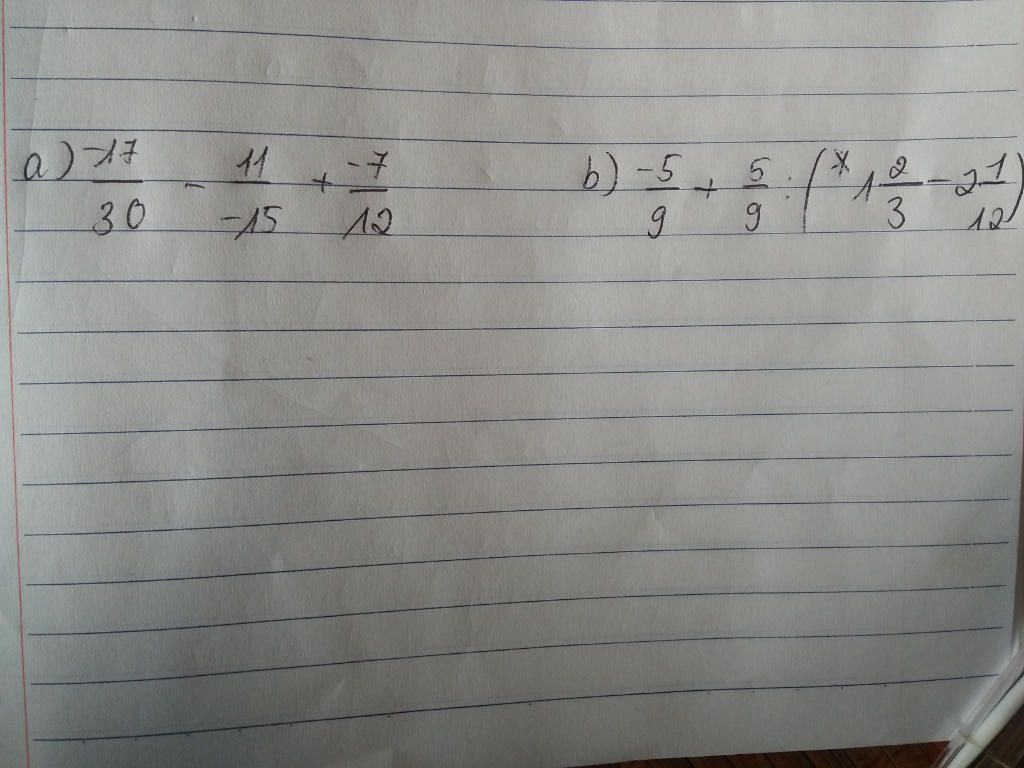 a) -17/30 - 11/-15 + -7/12
b) -5/9 + 5/9 : (1 2/3 - 2 1/12)